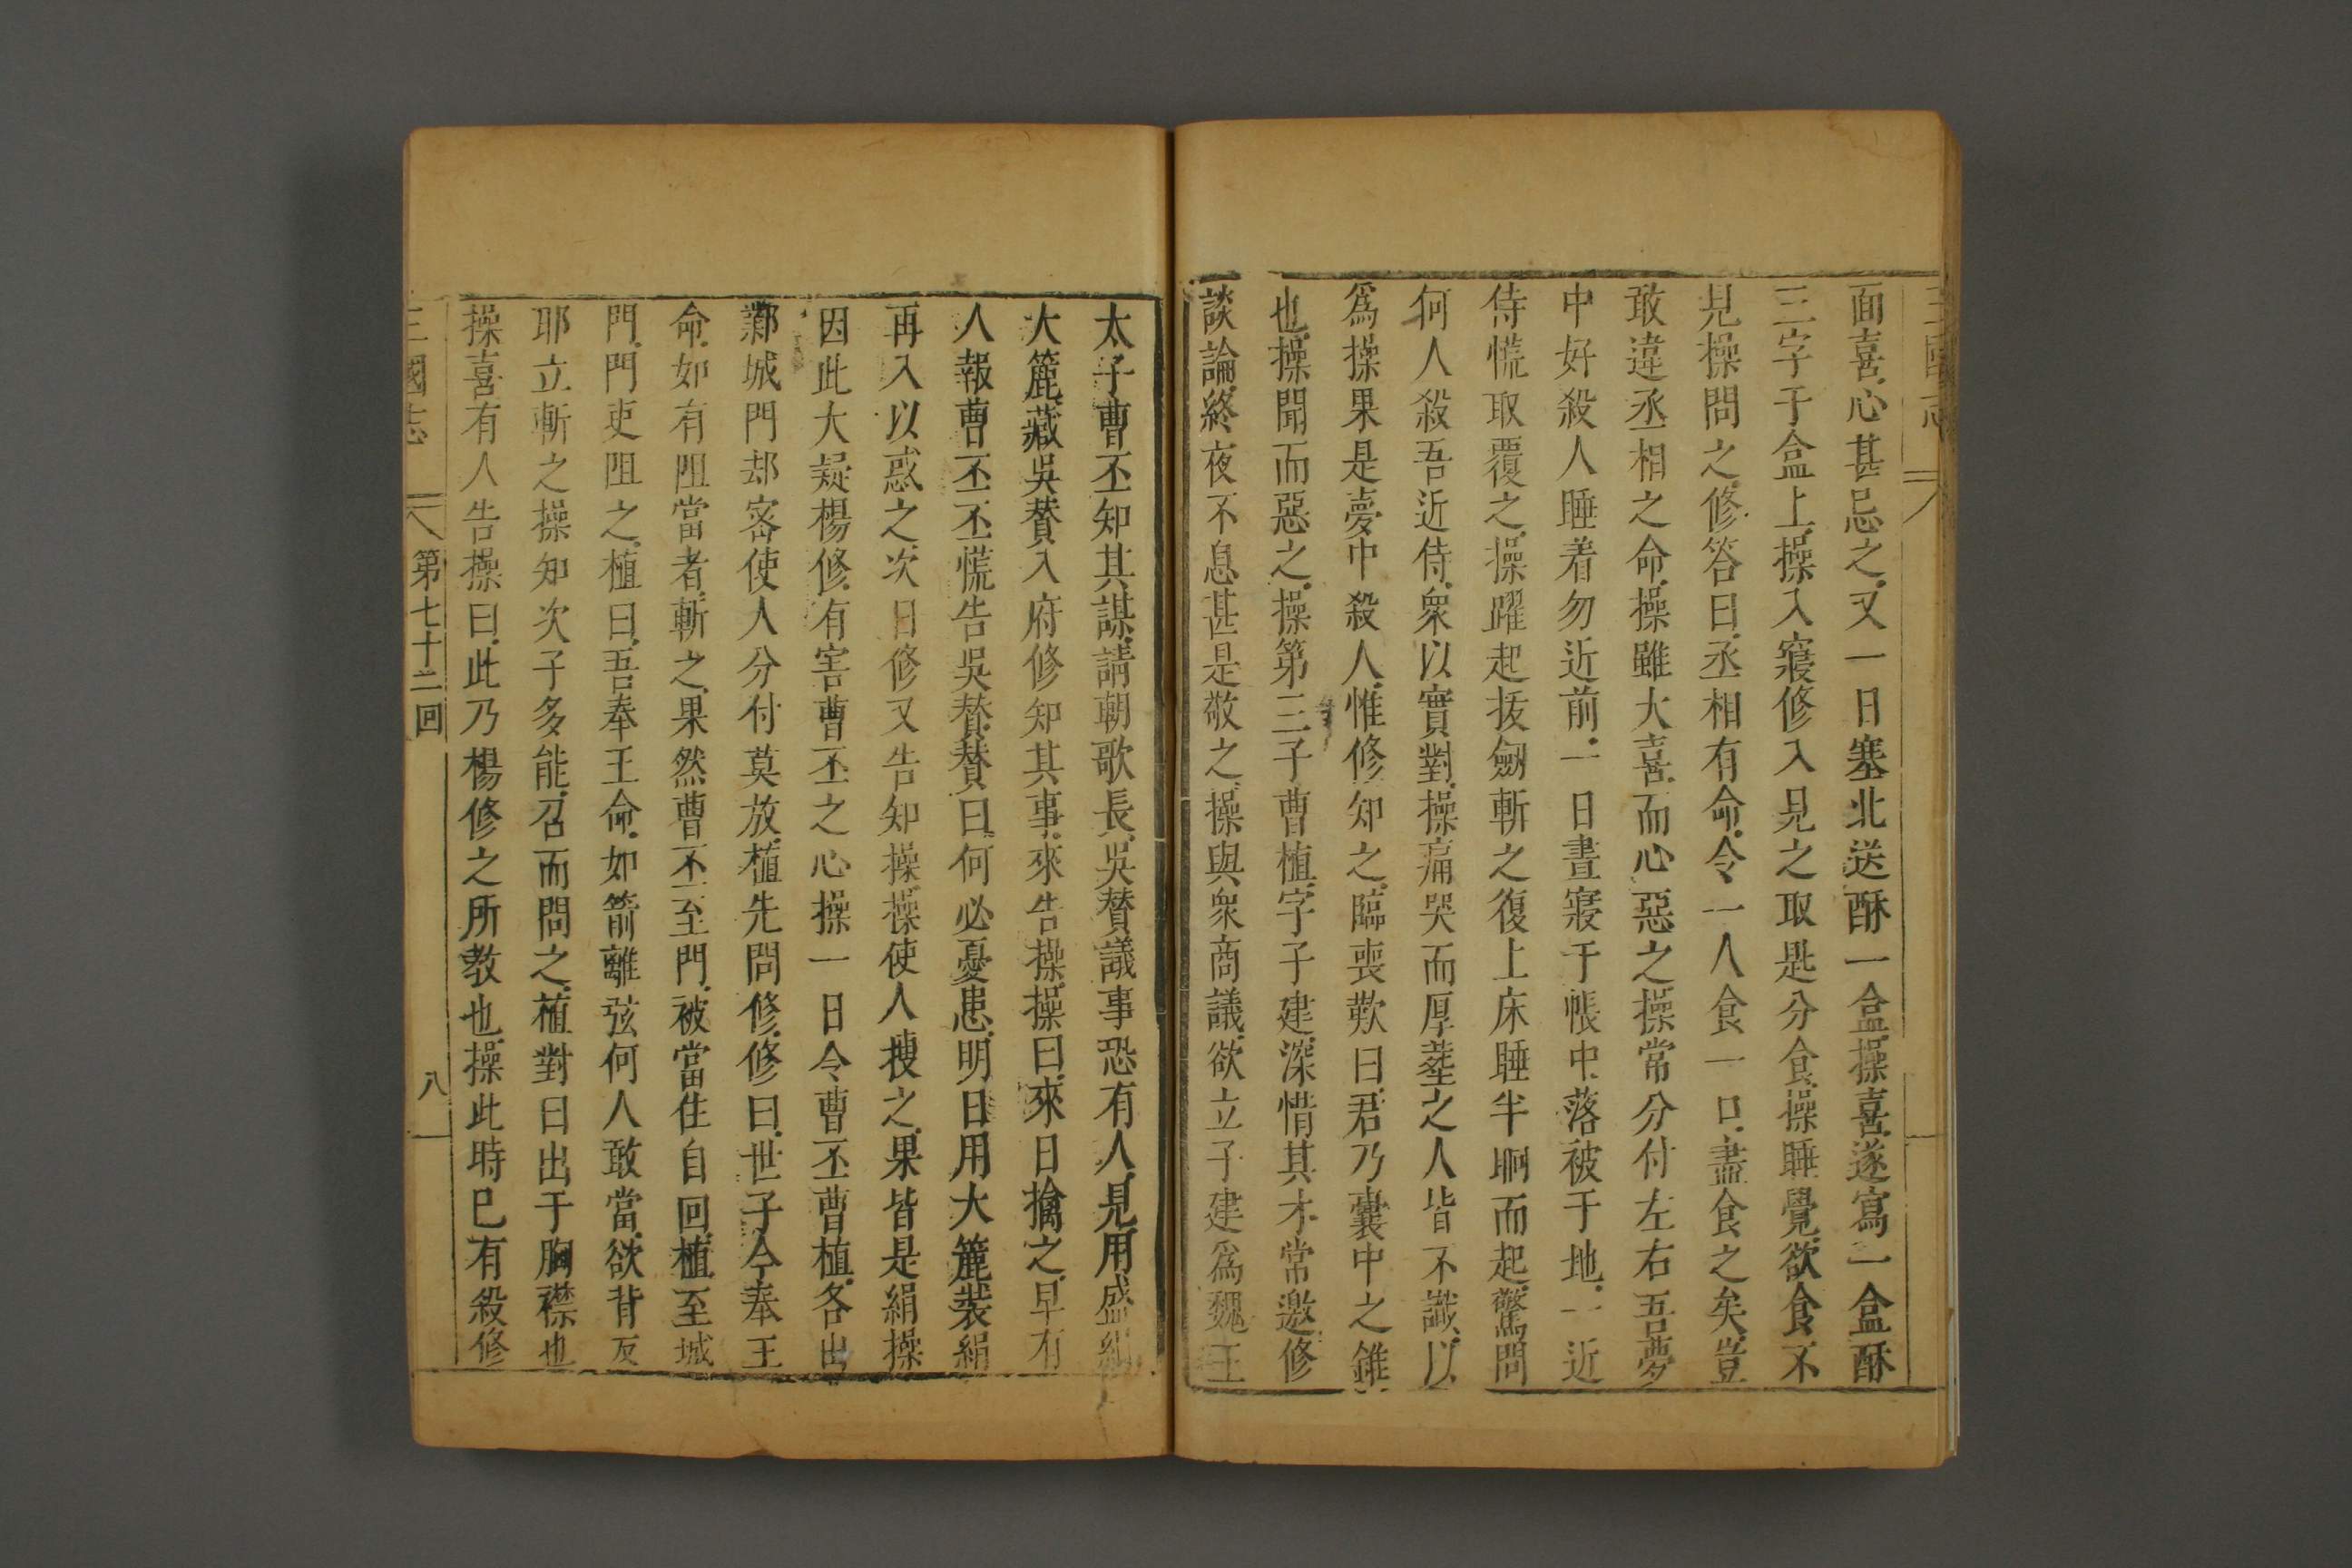 三國志
面喜心甚忌之又一日塞北送酥一盒操喜遂寫一盒酥
三字于盒上操入寢修入見之取匙分食操睡覺欲食不
見操問之修答曰丞相有命令一人食一口盡食之矣豈
敢違丞相之命操雖大喜而心惡之操常分付左右吾夢
中好殺人睡着勿近前一日晝寢于帳中落被于地一近
侍慌取覆之操躍起拔劍斬之復上床睡半晌而起驚問
何人殺吾近侍衆以實對操痛哭而厚塟之人皆不識以
爲操果是夢中殺人惟修知之臨喪歎曰君乃囊中之錐
也操聞而惡之操第三子曹植字子建深惜其才常邀修
談論終夜不息甚是敬之操與衆商議欲立子建爲魏王
太子曹丕知其謀請朝歌長吳賛議事恐有人見用盛絹
大簏藏吳賛入府修知其事來告操操曰來日擒之早有
人報曹丕丕慌告吳賛賛曰何必憂患明日用大簏裝絹
再入以惑之次日修又告知操操使人搜之果皆是絹操
因此大疑楊修有害曹丕之心操一日令曹丕曹植各出
鄴城門却宻使人分付莫放植先問修修曰世子今奉王
命如有阻當者斬之果然曹丕至門被當住自回植至城
門門吏阻之植曰吾奉王命如箭離弦何人敢當欲背反
耶立斬之操知次子多能召而問之植對曰出于胸襟也
操喜有人告操曰此乃楊修之所教也操此時巳有殺修
三國志 第七十二回 八